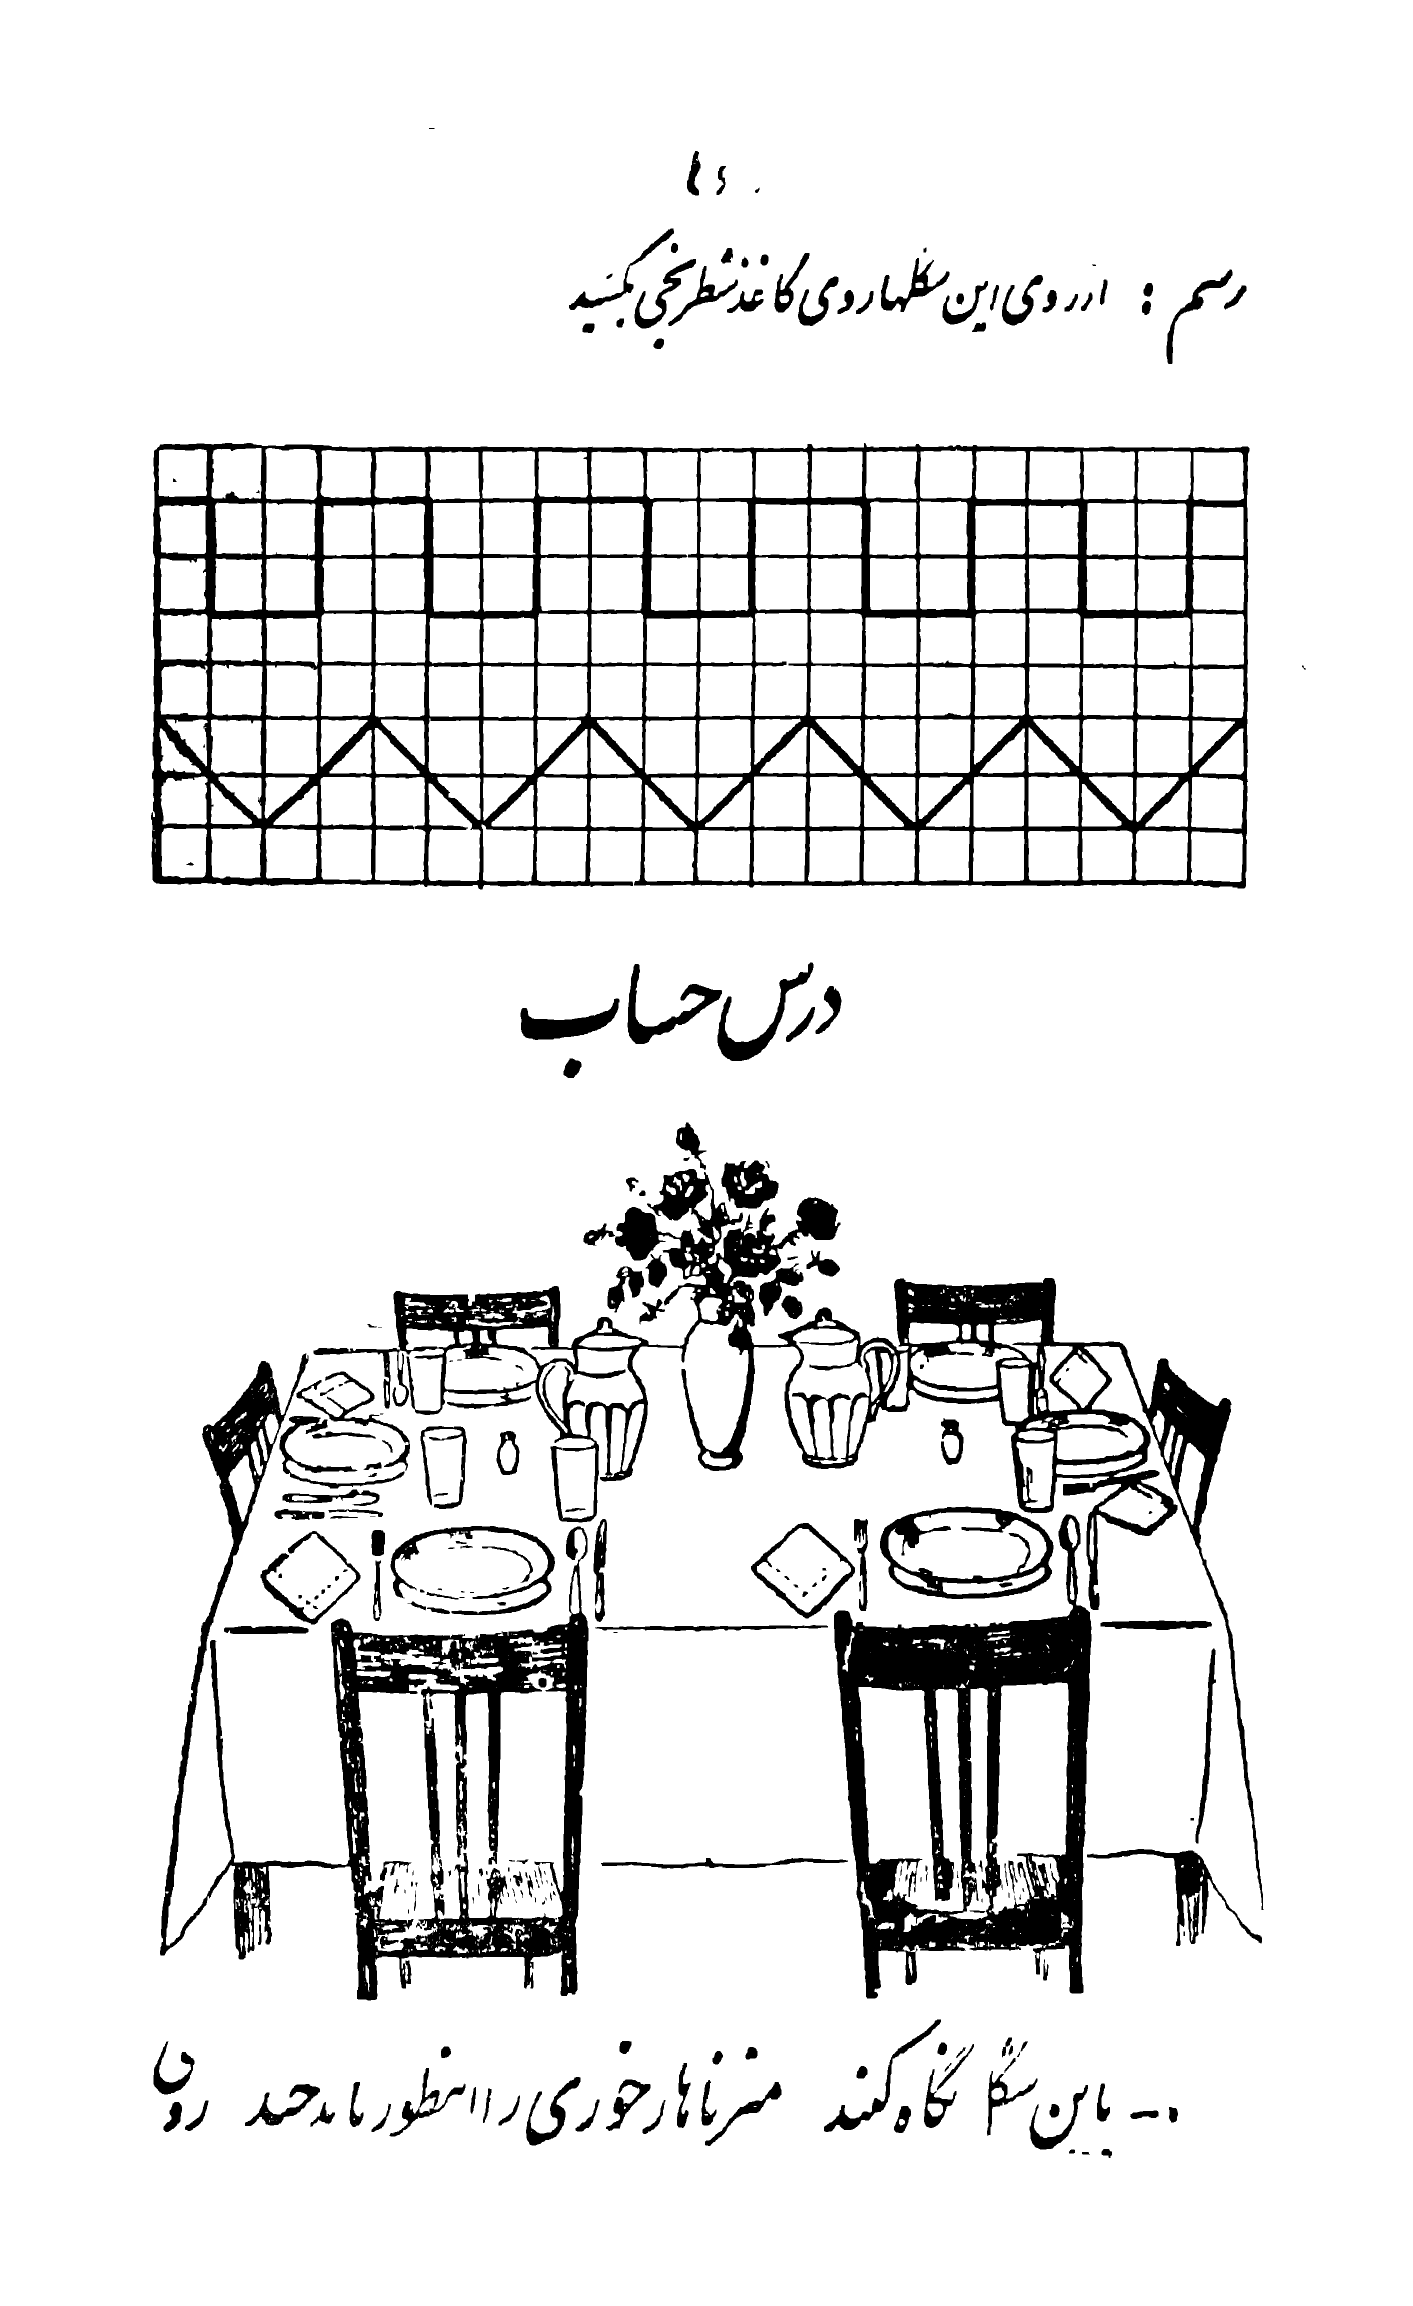 رسم : از روی این شکلها روی کاغذ شطرنجی بکشید
درس حساب
باین شکل نگاه کنید میز ناهارخوری را اینطور باید چید روی